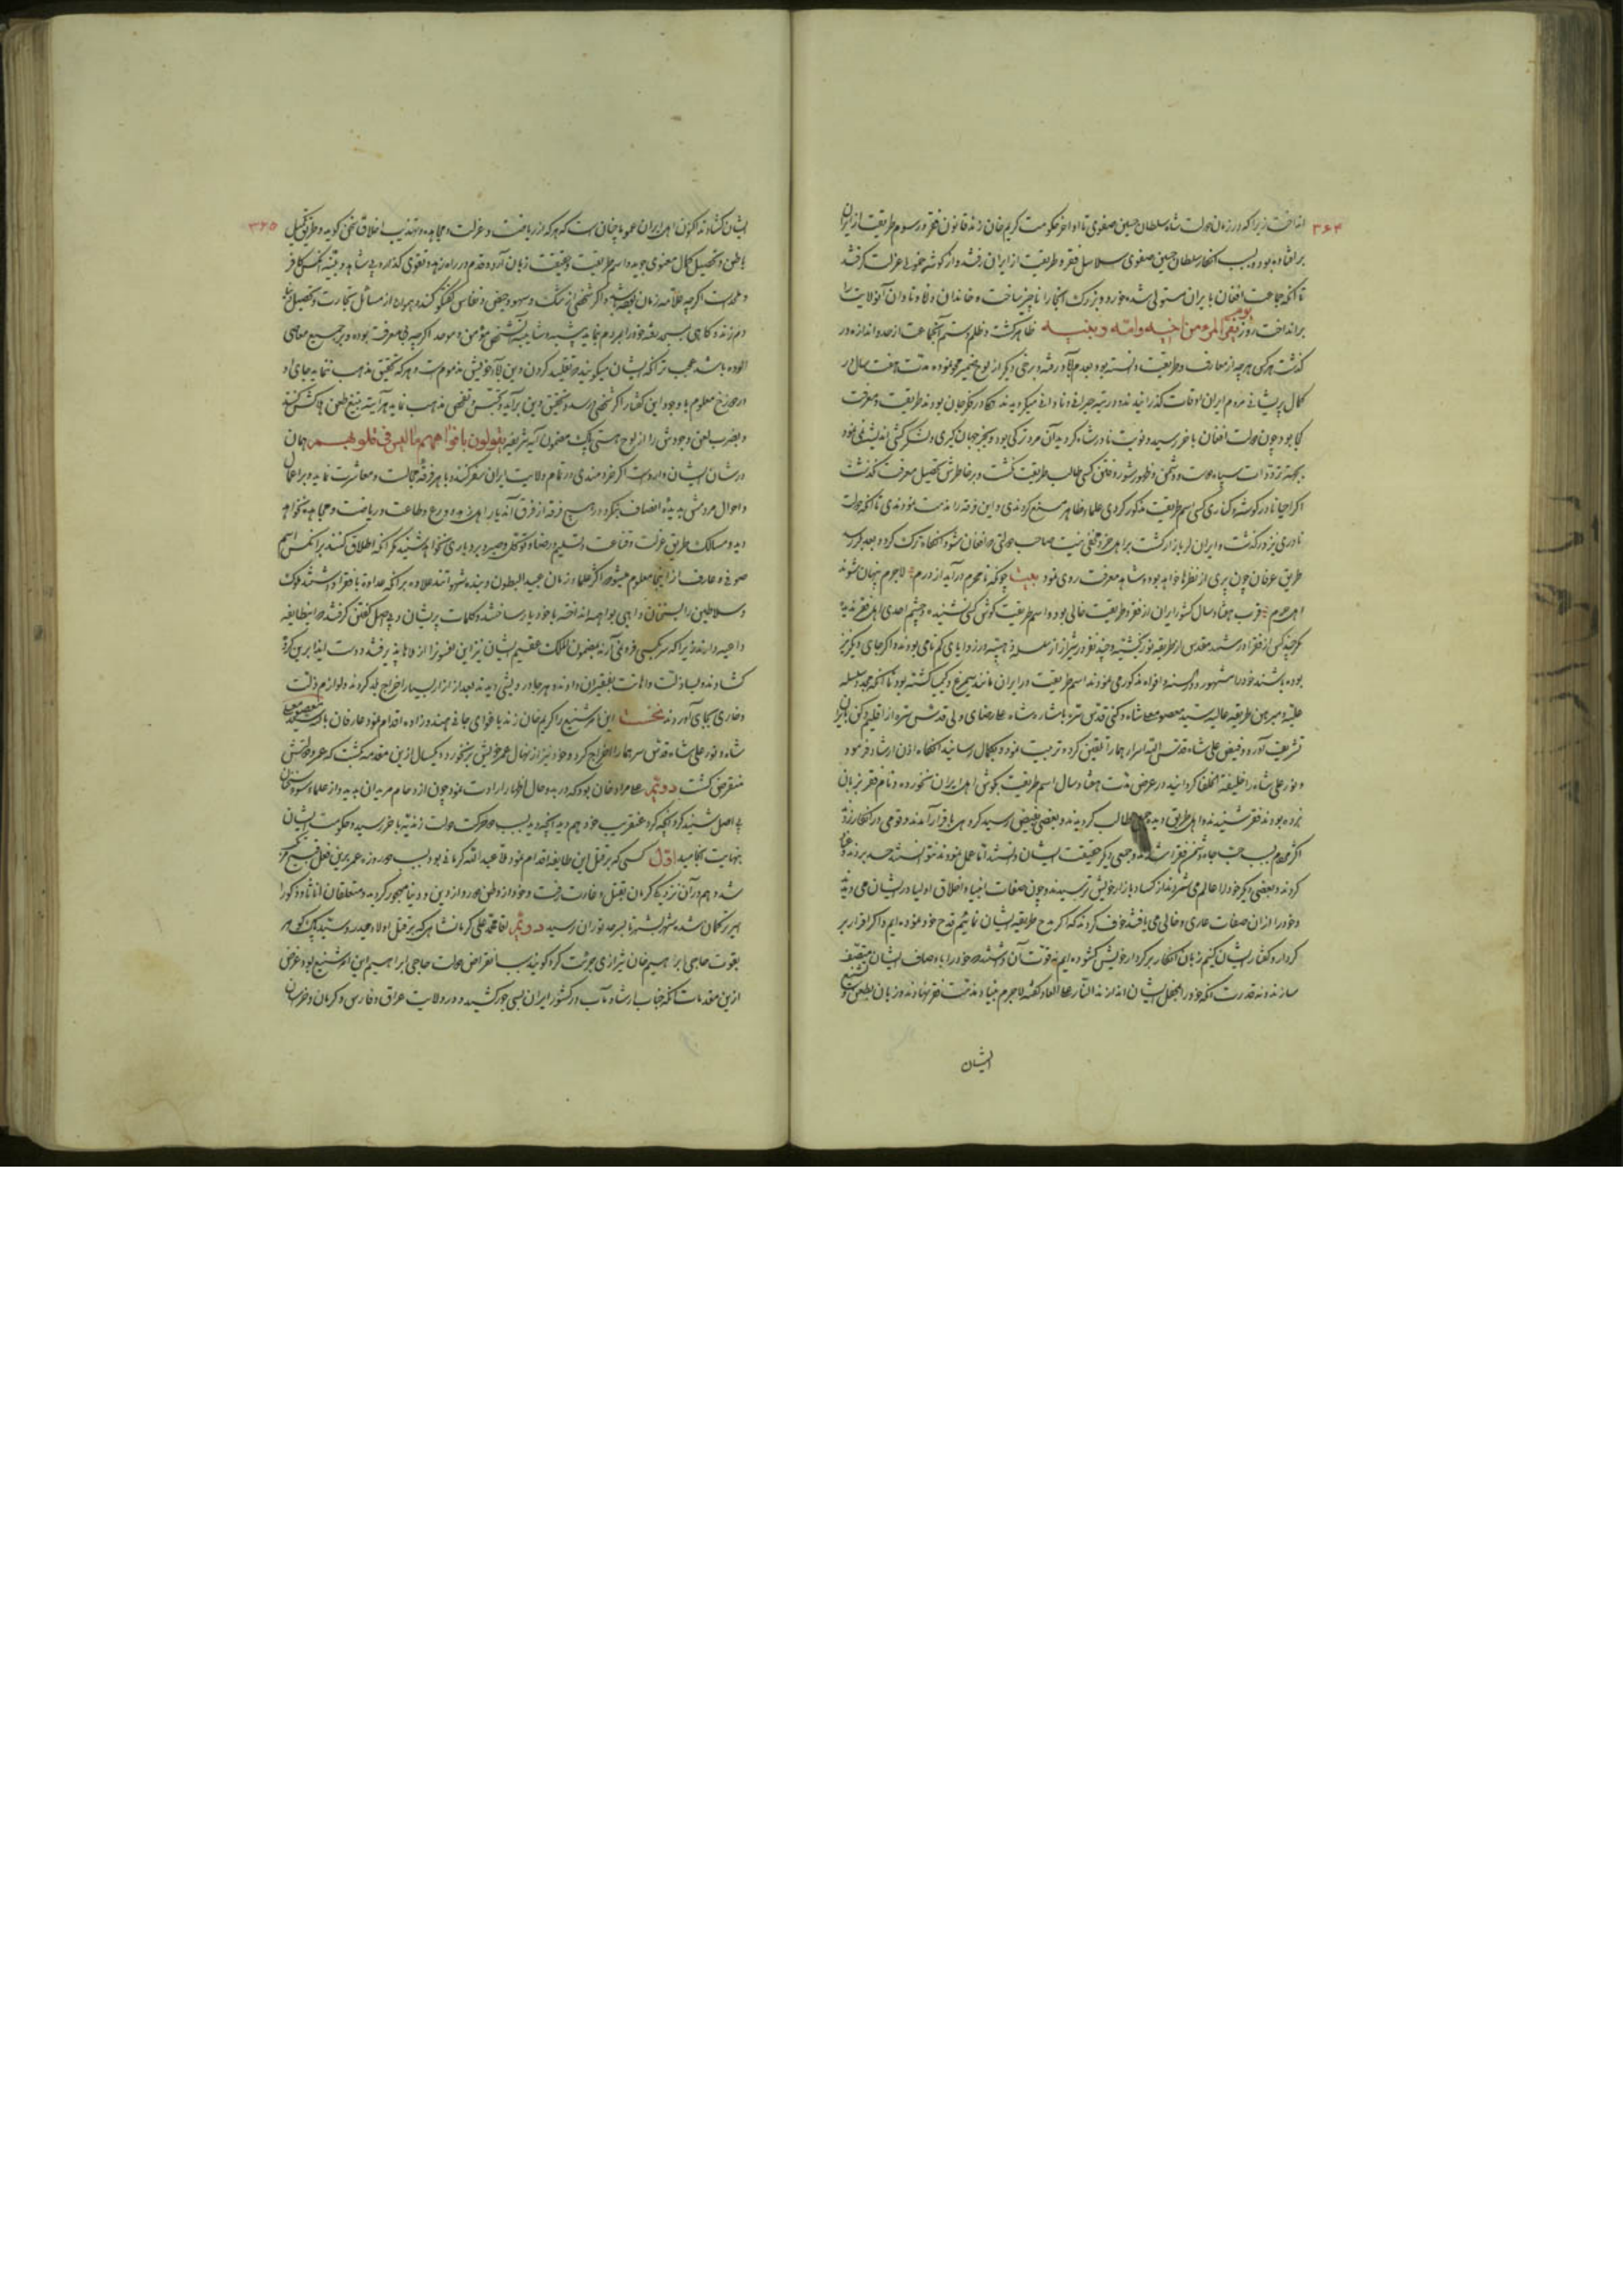 ۳۶۴
انداخت زیرا که در زمان دولت شاه سلطان حسین صفوی تا اواخر حکومت کریم خان زند قانون فقر و رسوم طریقت از ایران
برافتاده بود و بسبب انکار سلطان حسین صفوی سلاسل فقر و طریقت از ایران رفتند و از گوشه خمولی عزلت گرفتند
تا آنکه جماعت افغان بایران مستولی شده خورد و بزرگ آنجا را ناچیز ساخت و خاندان دانا و نادان آنولایت را
برانداخت روز یوم یفر المرء من اخیه وامه وبنیه ظاهر گشت و ظلم و ستم آنجماعت از حد و اندازه در
گذشت هر کس هرچه از معارف و طریقت دانسته بود بعدم آباد رفته و برخی دیگر از لوح ضمیر محو نموده مدت هفت سال در
کمال پریشانی مردم ایران اوقات گذرانیدند و در تیه حیرانی و نادانی میگردیدند همکاً در فکر جان بودند طریقت و معرفت
کجا بود چون دولت افغان بآخر رسید و نوبت نادرشاه گردید آن مرد ترکی بود و بجز جهانگیری و لشکرکشی اندیشه نمی نمود
اگر احیاناً در گوشه و کناری کسی اسم طریقت مذکور کردی علماء ظاهر منع کردندی و این فرقه را مذمت نمودندی تا آنکه دولت
نادری نیز در گذشت و ایران
طریق عرفان چون پری از نظرها غایب بود و شاهد معرفت روی نمود بیت چونکه نامحرم درآید از درم لاجرم پنهان شوند
اهل حرم قرب هفتاد سال کشور ایران از فقر و طریقت خالی بود و اسم طریقت گوش کسی نشنیده و چشم احدی اهل فقر ندیده
مگر چند کس از فقرا در مشهد مقدس از طریقه نوربخشیه و چند نفر در شیراز از سلسله ذهبیه در زوایای گمنامی بودند و اگر جای دیگر نیز
بوده باشند خود را مشهور و در السنه و افواه مذکور نمی نمودند اسم طریقت در ایران مانند سیمرغ و کیمیا گشته بود تا آنکه
علیه و مبرهن طریقه عالیه سید معصوم علیشاه دکنی قدس سره باشاره شاه علیرضای ولی قدس سره از اقلیم دکن بایران
تشریف آورد و فیض علیشاه قدس الله اسرارهما را تلقین کرده تربیت نمود و بکمال رسانید آنگاه اذن ارشاد فرمود
و نورعلیشاه را خلیفة الخلفا گردانید در عرض مدت هفتاد سال اسم طریقت بگوش اهل ایران نخورده و نام فقر بزبان
نبرده بودند فقر شنیدند و اهل طریق دیدند طالب گردیدند و بعضی بفیض رسید گروهی باقرار آمدند و قومی در انکار زدند
اکثر مردم بسبب حب جاه دشمن فقرا شدند و جمعی دیگر حقیقت ایشان دانستند اما عمل نمودند نتوانستند حسد بردند و عناد
کردند و بعضی دیگر خود را عالم می شمردند از کساد بازار خویش ترسیدند و چون صفات انبیا و اخلاق اولیا در ایشان می دیدند
و خود را از آن صفات عاری و خالی می یافتند خوف کردند که اگر مدح طریقه ایشان نمائیم قدح خود نموده ایم و اگر اقرار بر
کردار و گفتار ایشان کنیم زبان انکار بر کردار خویش گشوده ایم نه قوت آن داشتند خود را باوصاف ایشان متصف
سازند و نه قدرت آنکه خود را لاجرم بنیاد مذمت فقر نهادند و زبان بطعن و تشنیع
ایشان
۳۶۵
ایشان گشادند اکنون اهل ایران عموماً چنان است که هر که از ریاضت و عزلت و مجاهده و تهذیب اخلاق سخن گوید و طریق تکمیل
باطن و تحصیل کمال معنوی جوید و اسم طریقت و حقیقت بزبان آرد و قدم در راه زهد و تقوی گذارد بی شاهد و بینه آنکس کافر
و ملحد است اگرچه علامه زمان بوده باشد و اگر شخصی از شک و سهو و حیض و نفاس گفتگو کند و همواره از مسائل تجارت و تحصیل
دم زند و گاهی سبحه خود را بمردم نماید بیشبهه و شایبه آنشخص مؤمن و موحد اگرچه بی معرفت بوده و بر جمیع معاصی
آلوده باشد عجب تر آنکه ایشان میگویند تقلید کردن در دین آباء خویش مذموم است و هر که تحقیق مذهب ننماید جای او
در دوزخ معلوم با وجود این گفتار اگر شخصی در صدد تحقیق دین برآید و تجسس و تفحص مذهب نماید هرآینه بتیغ طعن هلاکش کنند
و بضرب لعن وجودش را از لوح هستی پاک مضمون آیه شریفه یقولون بافواههم ما لیس فی قلوبهم همان
در شان ایشان وارد است اگر خردمندی در تمام ولایت ایران سفر کند و با هر فرقه مجالست و معاشرت نماید و بر اعمال
و احوال مردمش بدیده انصاف بنگرد در هیچ فرقه از فرق آندیار اهل زهد و ورع و طاعت و ریاضت و مجاهده نخواهد
دید و مسالک طریق عزلت و قناعت و تسلیم و رضا و توکل و صبر و بردباری نخواهد شنید مگر آنکه اطلاق کنند بر آنکس اسم
صوفی و عارف از اینجا معلوم میشود اکثر علماء زمان عبید البطون و بنده شهوانند علاوه بر آنکه عداوت با فقرا داشتند ملوک
و سلاطین را بسخنان واهی بواهمه انداخته با خود یار ساختند و کلمات پریشان و بی اصل گفتن گرفتند اینطایفه
داعیه دارند زیرا که سر بکسی فرو نمی آرند بمضمون الملک عقیم ایشان نیز این افسون را از ملاها پذیرفتند و دست ایذا بر این گروه
گشادند و لباد ذلت و اهانت بفقیران دادند و هر جا درویشی دیدند بعد از آزار بسیار اخراج بلد کردند و لوازم ذلت
و خاری بجای آوردند نخست این امر شنیع را کریم خان زند باغوای جانی هندوزاده اقدام نمود عارفان بالله سید معصوم علی
شاه و نورعلی شاه قدس سرهما را اخراج کرد و خود نیز از نهال عمر خویش برنخورد و یکسال از این مقدمه نگذشت که عمر و دولتش
منقرض گشت دویم علیمراد خان بود که در بدو حال اظهار ارادت نمود چون ازدحام مریدان بدید و از علماء سوء سخنان
بی اصل شنید کرد آنچه کرد عنقریب خود هم دید آنچه دید بسبب دولت زندیه بآخر رسید و حکومت ایشان
بنهایت انجامید اول کسی که بر قتل این طایفه اقدام نمود ملا عبدالله کرمانی بود
شد و هم در آن نزدیکی کرمان بقتل و غارت رفت و خود از وطن دور و از دین و دنیا مهجور گردید و متعلقان اناثاً و ذکوراً
اسیر ترکمان شده شهر بشهر تا بسرحد توران رسید دویم آقا محمد علی کرمانشاهی که بر قتل اولاد حیدر و سید پاک گوهر
بقوت حاجی ابراهیم خان شیرازی جرئت کرد گویند سبب انقراض دولت حاجی ابراهیم این امر شنیع بود غرض
از این مقدمات آنکه جناب ارشاد مآب در کشور ایران بسی جور کشید و در ولایت عراق و فارس و کرمان و خراسان